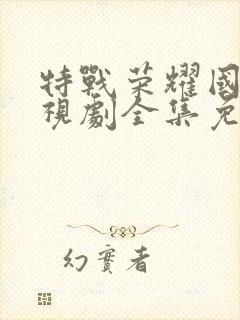 特戰榮耀國
視劇全集免
幻實者